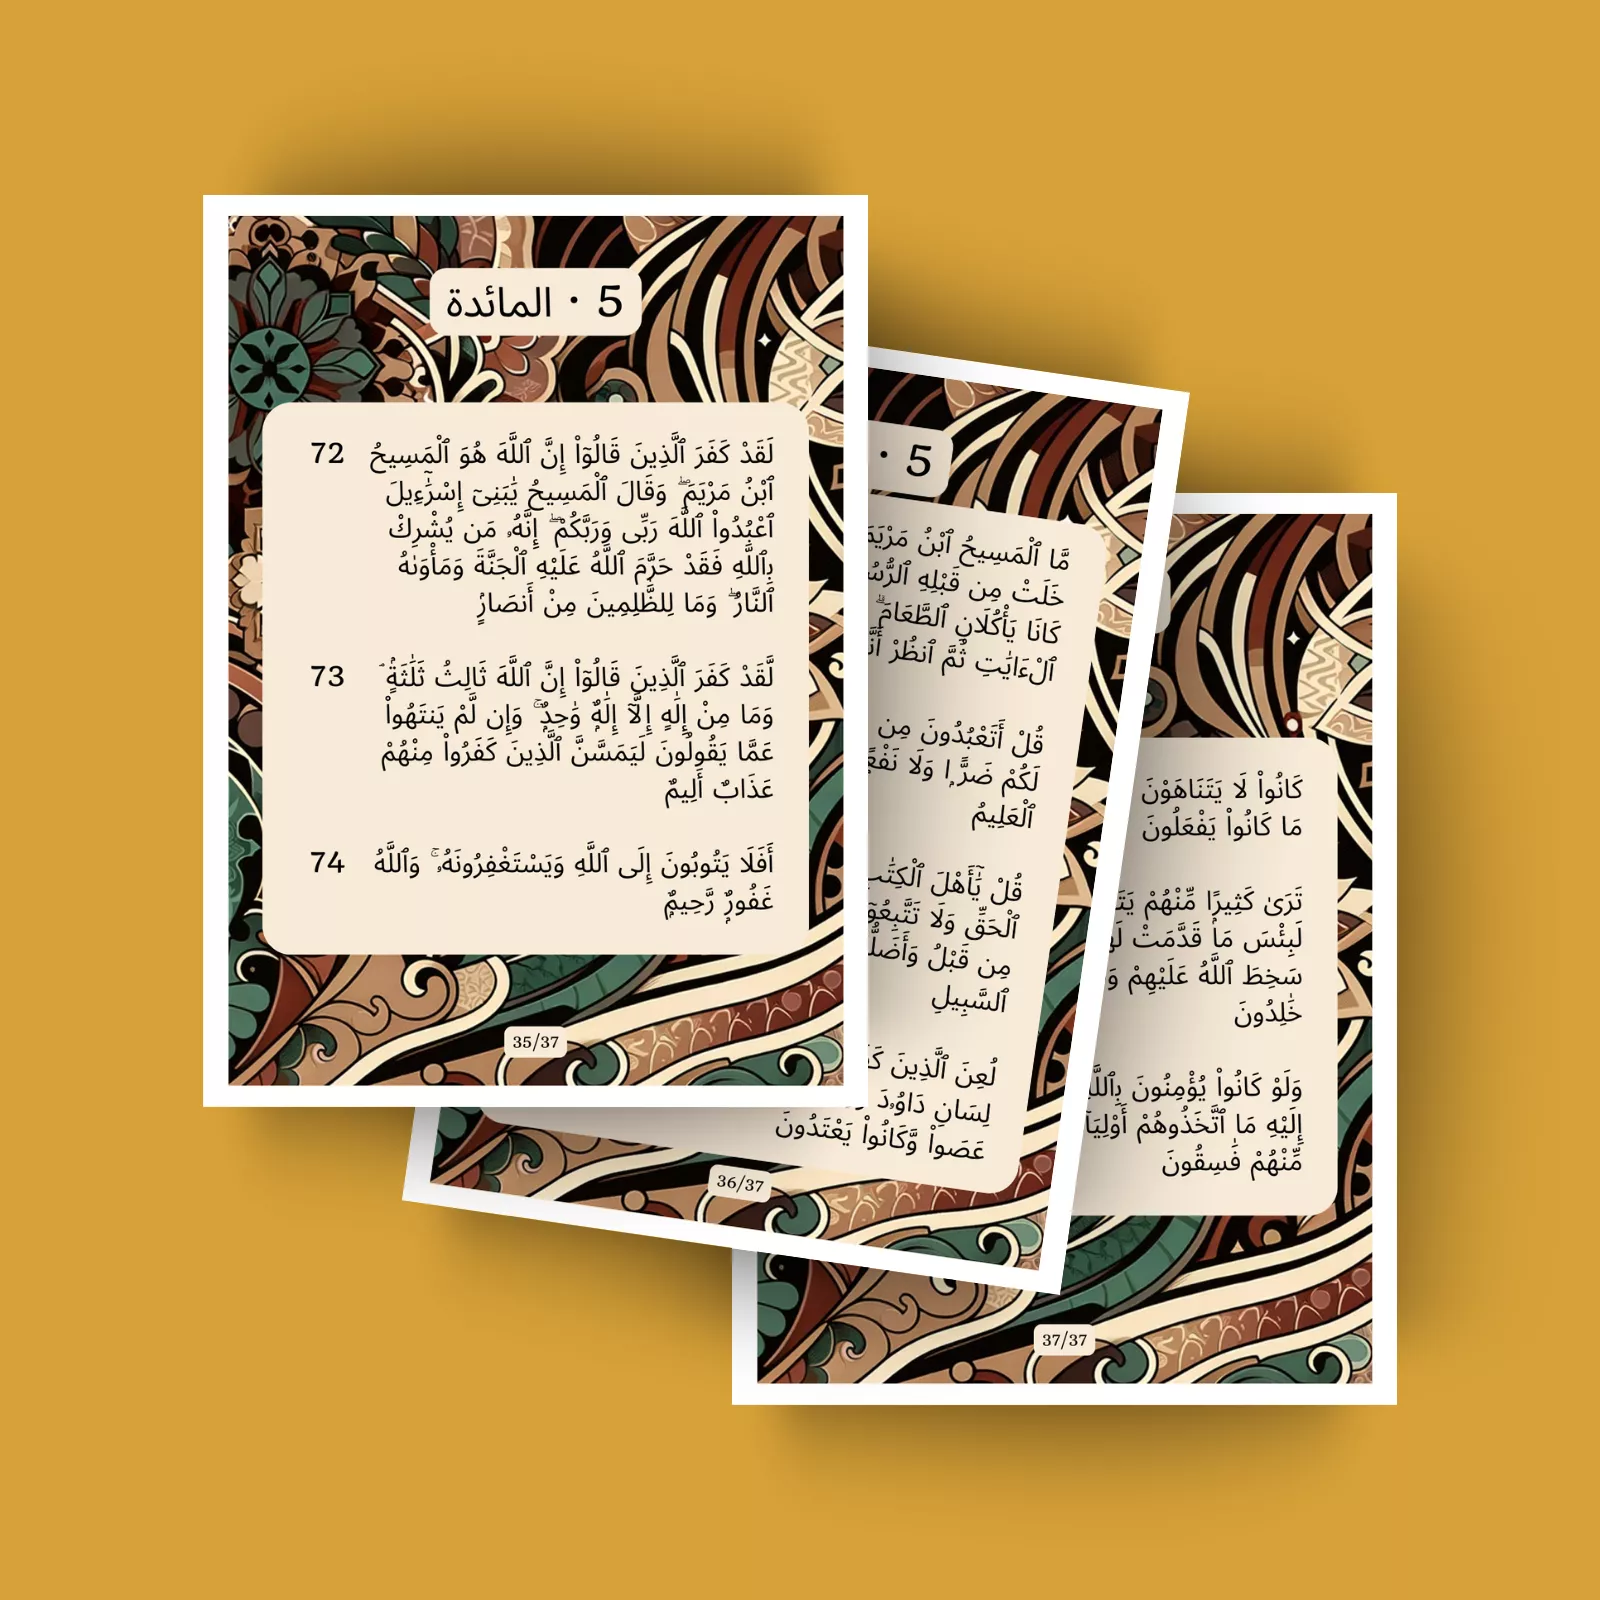 5 · المائدة
72 لَقَدْ كَفَرَ ٱلَّذِينَ قَالُوٓا۟ إِنَّ ٱللَّهَ هُوَ ٱلْمَسِيحُ
ٱبْنُ مَرْيَمَ ۖ وَقَالَ ٱلْمَسِيحُ يَٰبَنِىٓ إِسْرَٰٓءِيلَ
ٱعْبُدُوا۟ ٱللَّهَ رَبِّى وَرَبَّكُمْ ۖ إِنَّهُۥ مَن يُشْرِكْ
بِٱللَّهِ فَقَدْ حَرَّمَ ٱللَّهُ عَلَيْهِ ٱلْجَنَّةَ وَمَأْوَىٰهُ
ٱلنَّارُ ۖ وَمَا لِلظَّٰلِمِينَ مِنْ أَنصَارٍۢ
73 لَّقَدْ كَفَرَ ٱلَّذِينَ قَالُوٓا۟ إِنَّ ٱللَّهَ ثَالِثُ ثَلَٰثَةٍۢ ۘ
وَمَا مِنْ إِلَٰهٍ إِلَّآ إِلَٰهٌۭ وَٰحِدٌۭ ۚ وَإِن لَّمْ يَنتَهُوا۟
عَمَّا يَقُولُونَ لَيَمَسَّنَّ ٱلَّذِينَ كَفَرُوا۟ مِنْهُمْ
عَذَابٌ أَلِيمٌ
74 أَفَلَا يَتُوبُونَ إِلَى ٱللَّهِ وَيَسْتَغْفِرُونَهُۥ ۚ وَٱللَّهُ
غَفُورٌۭ رَّحِيمٌۭ
35/37
5 ·
مَّا ٱلْمَسِيحُ ٱبْنُ مَرْيَمَ
خَلَتْ مِن قَبْلِهِ
كَانَا يَأْكُلَانِ ٱلطَّعَامَ ۗ
ٱلْءَايَٰتِ ثُمَّ ٱنظُرْ
قُلْ أَتَعْبُدُونَ مِن
لَكُمْ ضَرًّۭا وَلَا
ٱلْعَلِيمُ
قُلْ يَٰٓأَهْلَ ٱلْكِتَٰبِ
ٱلْحَقِّ وَلَا
مِن قَبْلُ
ٱلسَّبِيلِ
لُعِنَ ٱلَّذِينَ
لِسَانِ دَاوُۥدَ
عَصَوا۟ وَّكَانُوا۟ يَعْتَدُونَ
36/37
كَانُوا۟ لَا يَتَنَاهَوْنَ
مَا كَانُوا۟ يَفْعَلُونَ
تَرَىٰ كَثِيرًۭا مِّنْهُمْ
لَبِئْسَ مَا قَدَّمَتْ
سَخِطَ ٱللَّهُ عَلَيْهِمْ
خَٰلِدُونَ
وَلَوْ كَانُوا۟ يُؤْمِنُونَ
إِلَيْهِ مَا ٱتَّخَذُوهُمْ
مِّنْهُمْ فَٰسِقُونَ
37/37